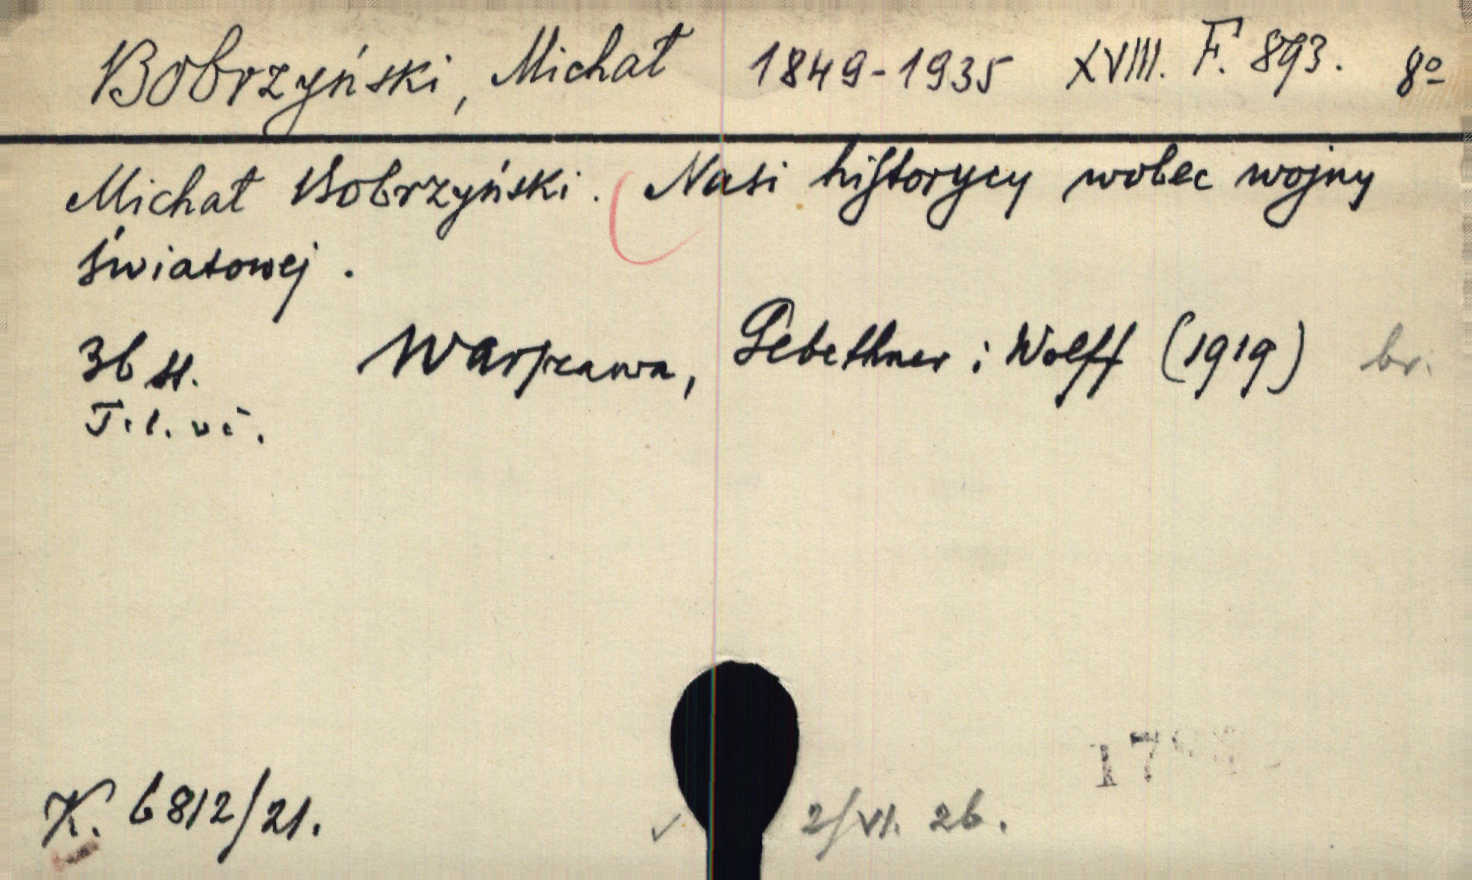 Bobrzyński, Michał 1849-1935 XVIII. F. 893. 8º
Michał Bobrzyński. Nasi historycy wobec wojny
światowej.
36 st. Warszawa, Gebethner i Wolff (1919) br.
T. l. vč.
K. 6812/21. 2/VI. 26.